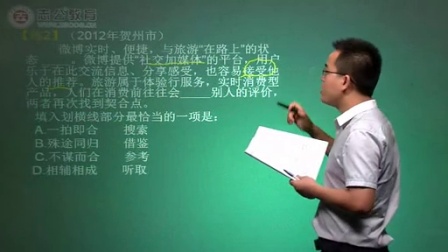 【例2】（2012年贺州市）
微博实时、便捷，与旅游“在路上”的状
态____，微博提供“社交加媒体”的平台，用户
乐于在此交流信息、分享感受，也容易接受他
人的推荐。旅游属于体验行服务，实时消费型
产品，人们在消费前往往会____别人的评价，
两者再次找到契合点。
填入划横线部分最恰当的一项是：
A.一拍即合 搜索
B.殊途同归 借鉴
C.不谋而合 参考
D.相辅相成 听取